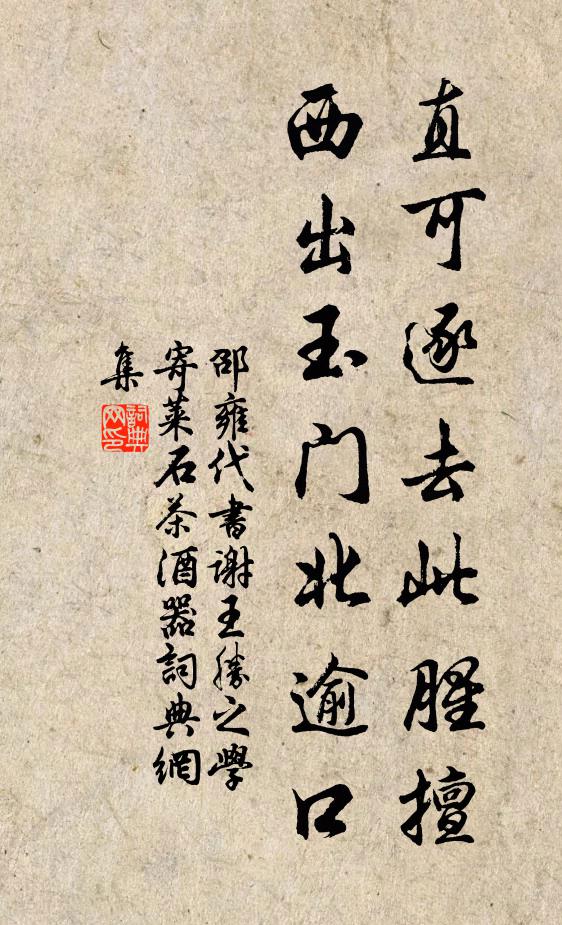 直可逐去此腥擅
西出玉门北逾口
邵雍代书谢王勝之學
寄莱石茶酒器詞典網
集
詞典
网印